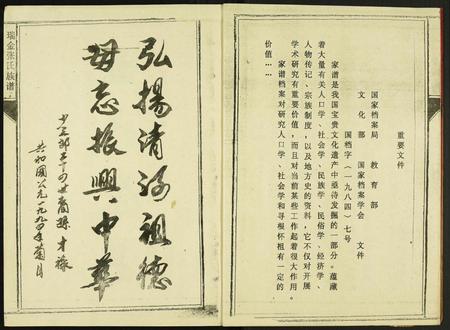 重要文件
国家档案局　教育部
文化部　国家档案学会　文件
国档字（一九八四）七号
家谱是我国宝贵文化遗产中亟待发掘的一部分。蕴藏
着大量有关人口学、社会学、民族学、民俗学、经济学、
人物传记、宗族制度，以及地方史的资料，它不仅对开展
学术研究有重要价值，而且对当前某些工作起着很大作用。
家谱档案对研究人口学、社会学和寻根怀祖有一定的
价值……
弘揚清河祖德
毋忘振興中華
共和國公元一九九四年菊月
瑞金张氏族谱